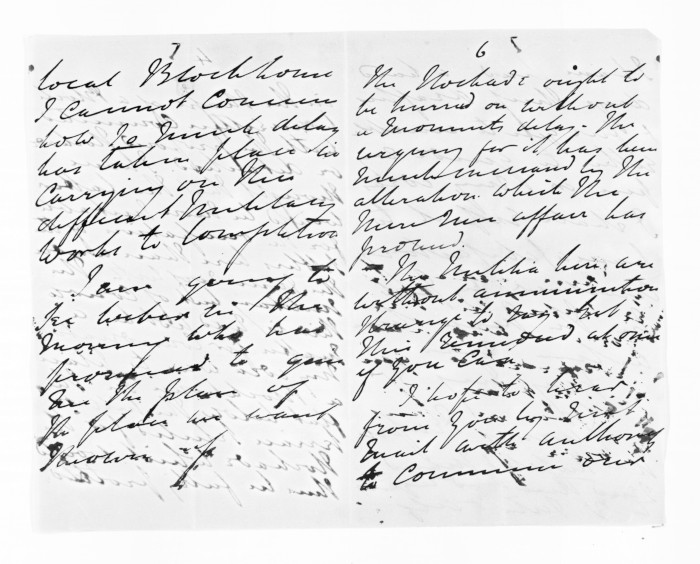 7
local Blockhouse
I cannot conceive
how so much delay
has taken place in
carrying on the
different Military
Works to Completion
I am going to
see Weber in the
morning who has
promised to give
me the plan of
the place we want
Known
6
The Stockade ought to
be hurried on without
a moments delay - The
urgency for it has been
much increased by the
alteration which the
affair has
produced.
The Militia here are
without ammunition
strange to say - Get
this remedied at once
if you can
I hope to hear
from you by first
mail with authority
to commence our